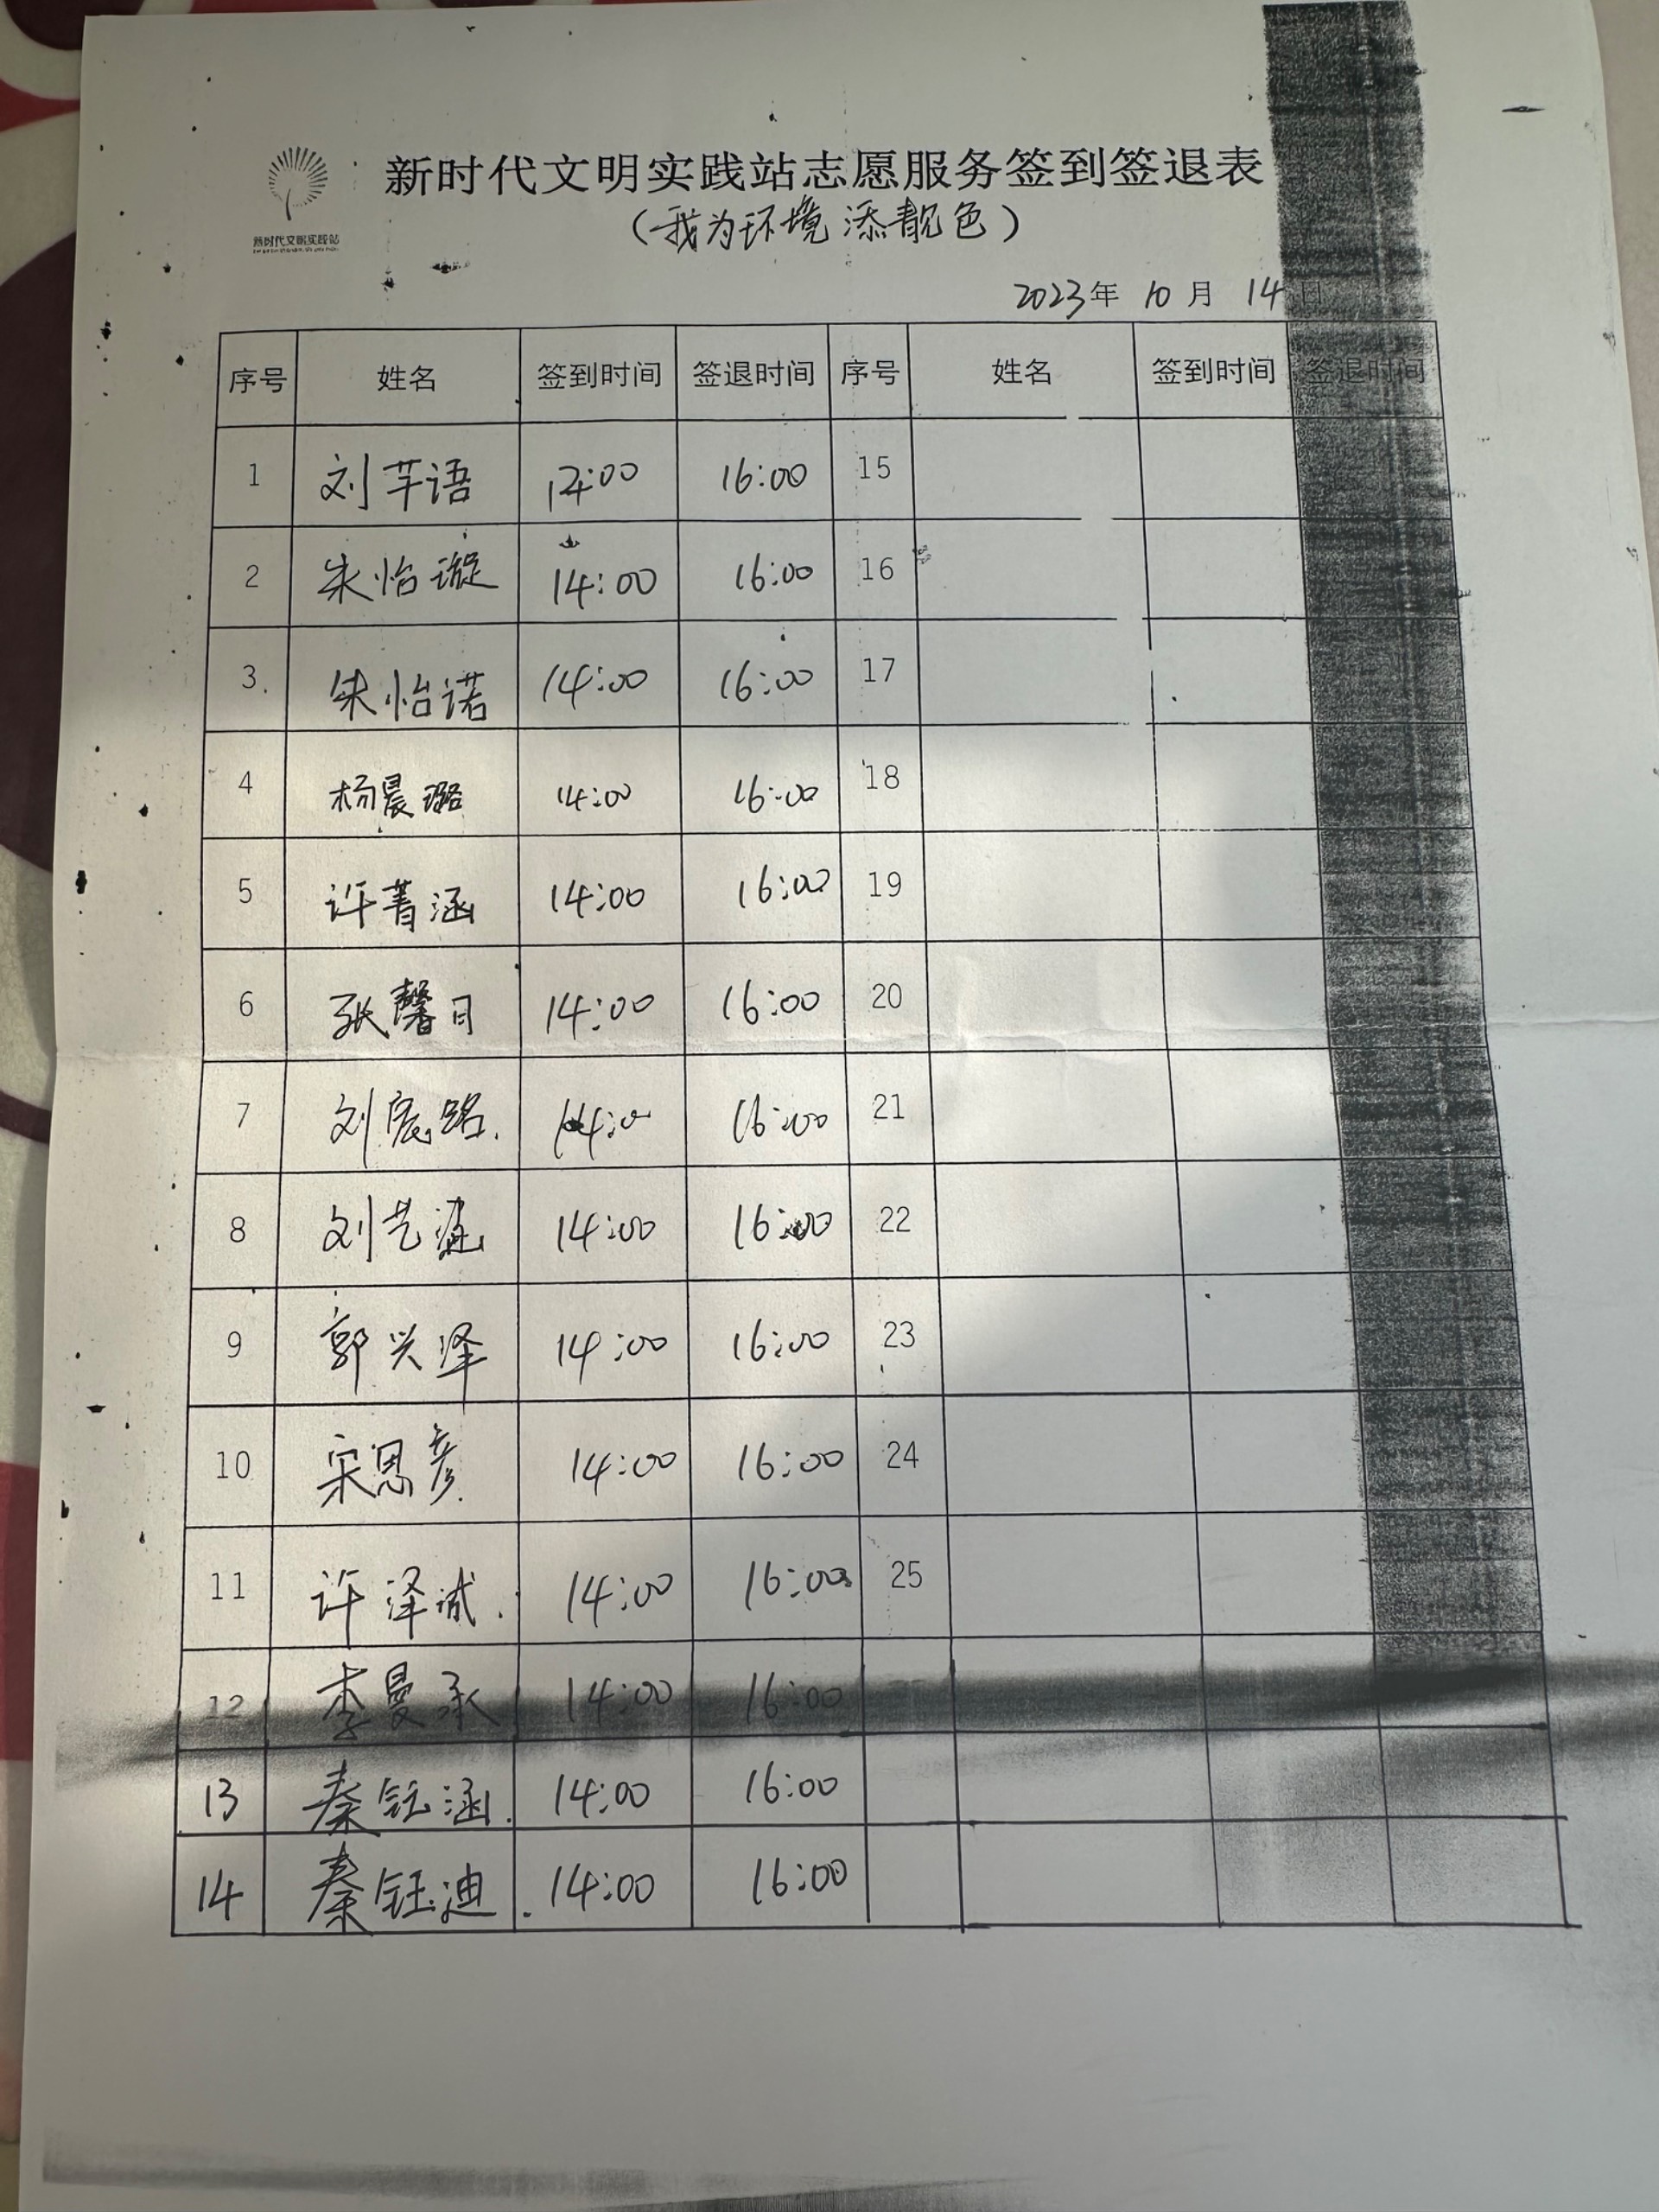 新时代文明实践站志愿服务签到签退表
新时代文明实践站
(我为环境添靓色)
2023年 10月 14日
序号 姓名 签到时间 签退时间 序号 姓名 签到时间 签退时间
1 刘芊语 14:00 16:00 15
2 朱怡璇 14:00 16:00 16
3 朱怡诺 14:00 16:00 17
4 杨晨璐 14:00 16:00 18
5 许菁涵 14:00 16:00 19
6 张馨日 14:00 16:00 20
7 刘宸路 14:00 16:00 21
8 刘艺涵 14:00 16:00 22
9 郭兴泽 14:00 16:00 23
10 宋思彦 14:00 16:00 24
11 许泽诚 14:00 16:00 25
12 李曼承 14:00 16:00
13 秦钰涵 14:00 16:00
14 秦钰迪 14:00 16:00